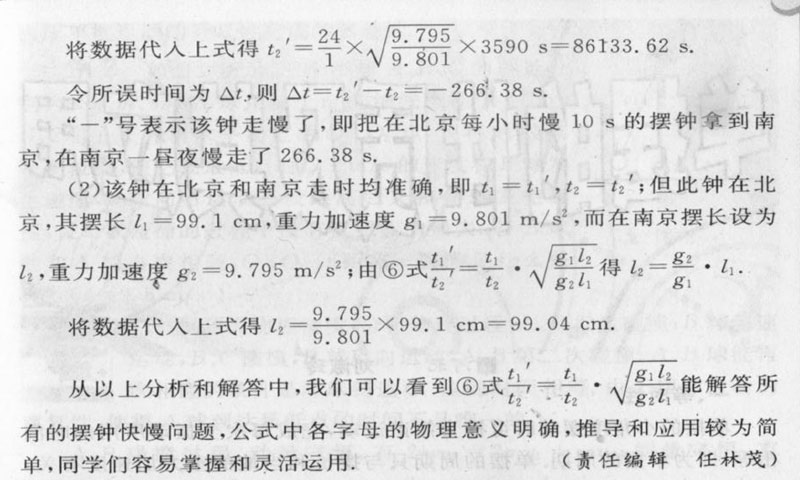 将数据代入上式得 t₂′=24/1×√(9.795/9.801)×3590 s=86133.62 s.
令所误时间为 Δt,则 Δt=t₂′−t₂=−266.38 s.
“一”号表示该钟走慢了,即把在北京每小时慢 10 s 的摆钟拿到南
京,在南京一昼夜慢走了 266.38 s.
(2)该钟在北京和南京走时均准确,即 t₁=t₁′,t₂=t₂′;但此钟在北
京,其摆长 l₁=99.1 cm,重力加速度 g₁=9.801 m/s²,而在南京摆长设为
l₂,重力加速度 g₂=9.795 m/s²;由⑥式t₁′/t₂′=t₁/t₂·√(g₁l₂/g₂l₁)得 l₂=g₂/g₁·l₁.
将数据代入上式得 l₂=9.795/9.801×99.1 cm=99.04 cm.
从以上分析和解答中,我们可以看到⑥式t₁′/t₂′=t₁/t₂·√(g₁l₂/g₂l₁)能解答所
有的摆钟快慢问题,公式中各字母的物理意义明确,推导和应用较为简
单,同学们容易掌握和灵活运用. (责任编辑 任林茂)